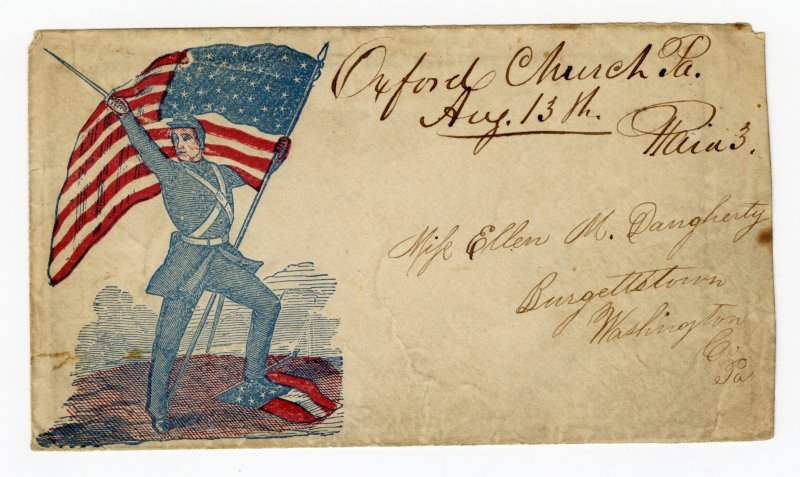 Oxford Church Pa.
Aug. 13th.
Paid 3.
Miſs Ellen M. Daugherty
Burgettstown
Washington
Co.
Pa